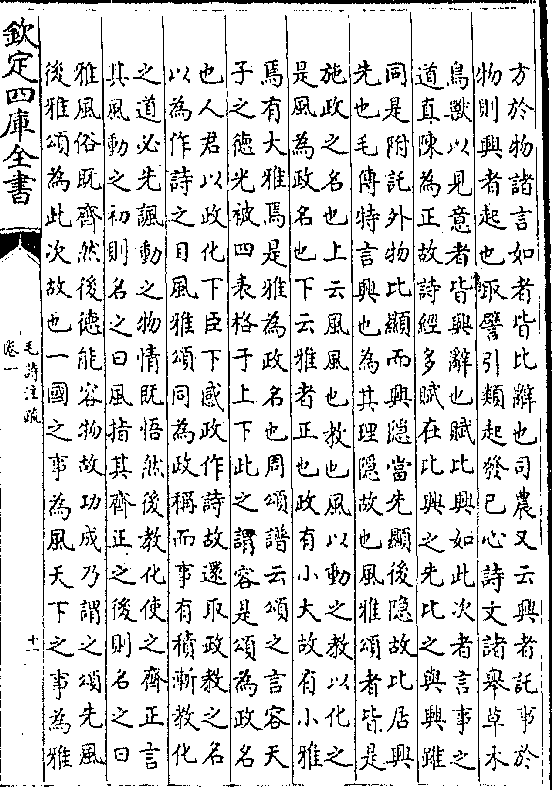 方於物諸言如者皆比辭也司農又云興者託事於
物則興者起也取譬引類起發已心詩文諸舉草木
鳥獸以見意者皆興辭也賦比興如此次者言事之
道直陳為正故詩經多賦在比興之先比之與興雖
同是附託外物比顯而興隠當先顯後隠故比居興
先也毛傳特言興也為其理隠故也風雅頌者皆是
施政之名也上云風風也教也風以動之教以化之
是風為政名也下云雅者正也政有小大故有小雅
焉有大雅焉是雅為政名也周頌譜云頌之言容天
子之徳光被四表格于上下此之謂容是頌為政名
也人君以政化下臣下感政作詩故還取政教之名
以為作詩之目風雅頌同為政稱而事有積漸教化
之道必先諷動之物情既悟然後教化使之齊正言
其風動之初則名之曰風指其齊正之後則名之曰
雅風俗既齊然後徳能容物故功成乃謂之頌先風
後雅頌為此次故也一國之事為風天下之事為雅
欽定四庫全書
毛詩注疏
卷一
十一